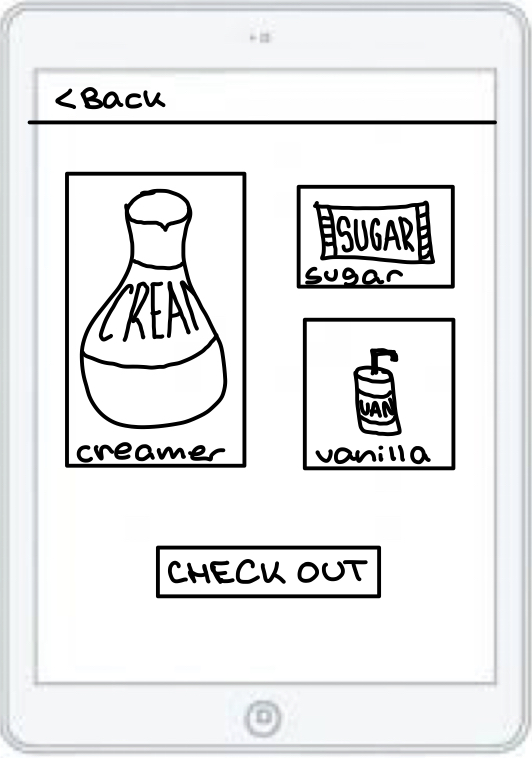 <Back
CREAM
creamer
SUGAR
sugar
VAN
vanilla
CHECK OUT